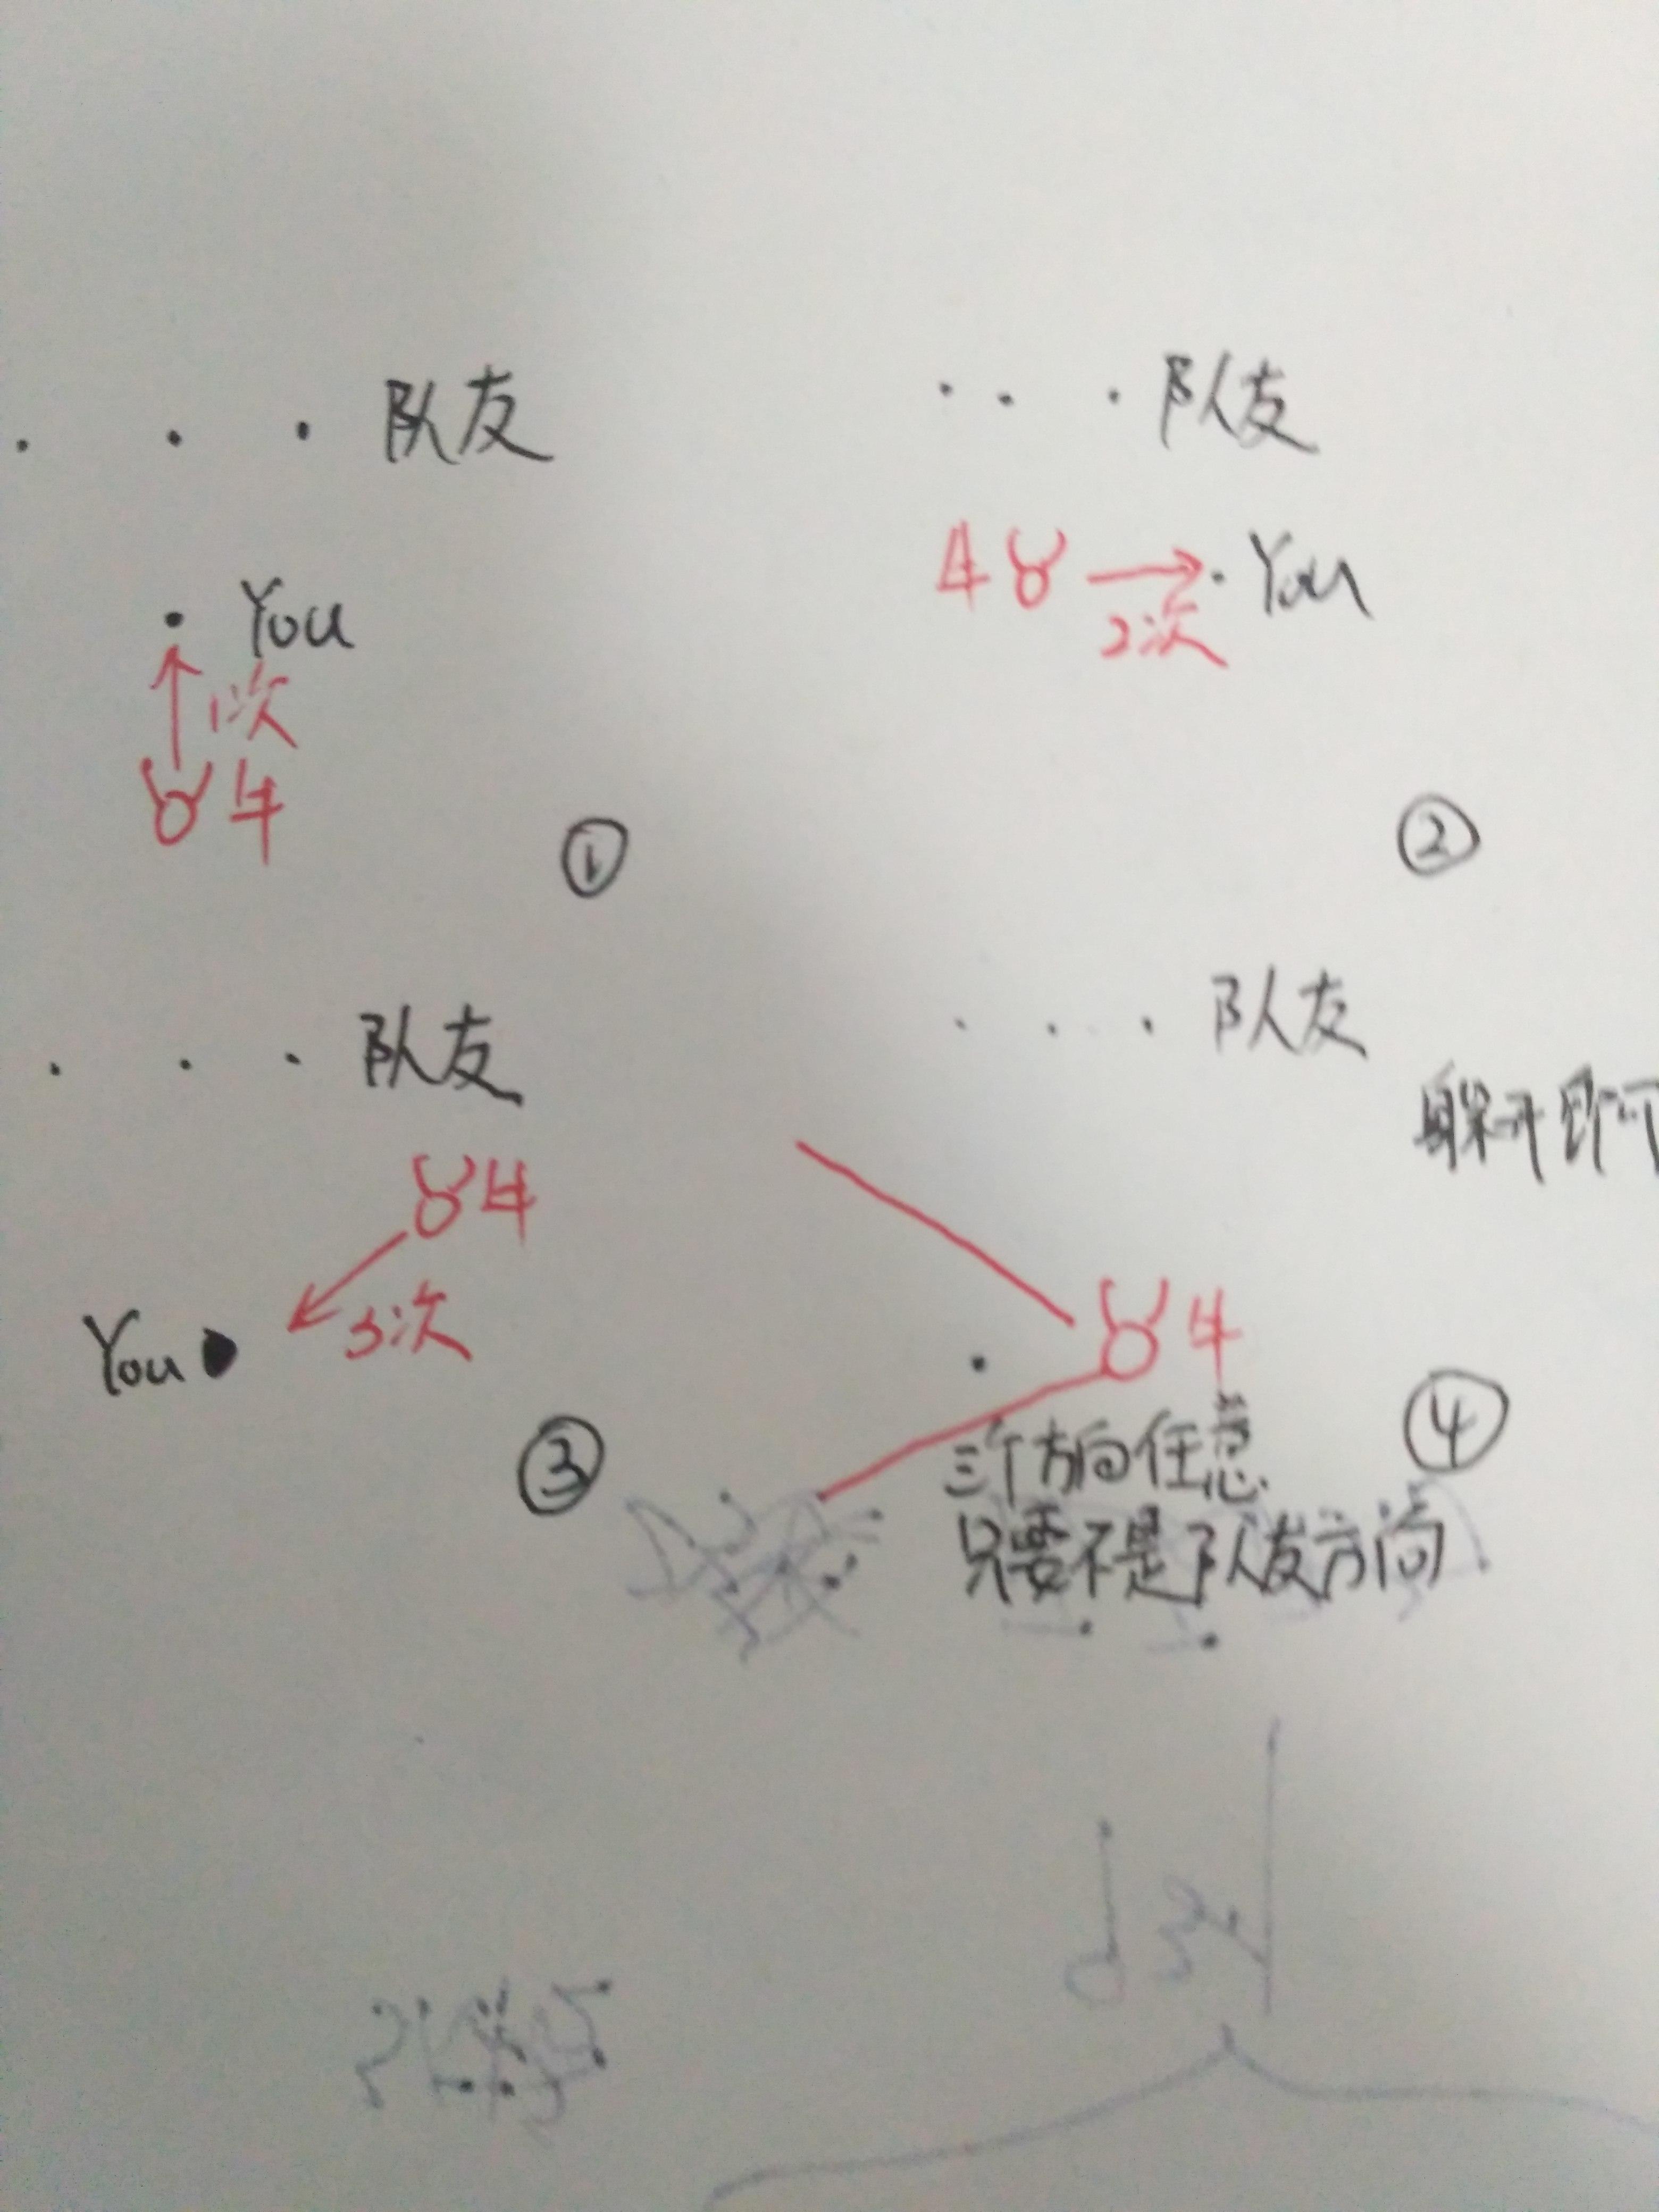 队友
You
1次
牛
①
队友
牛
You
2次
②
队友
牛
3次
You
③
队友
躲开即可
牛
三个方向任意
只要不是队友方向
④